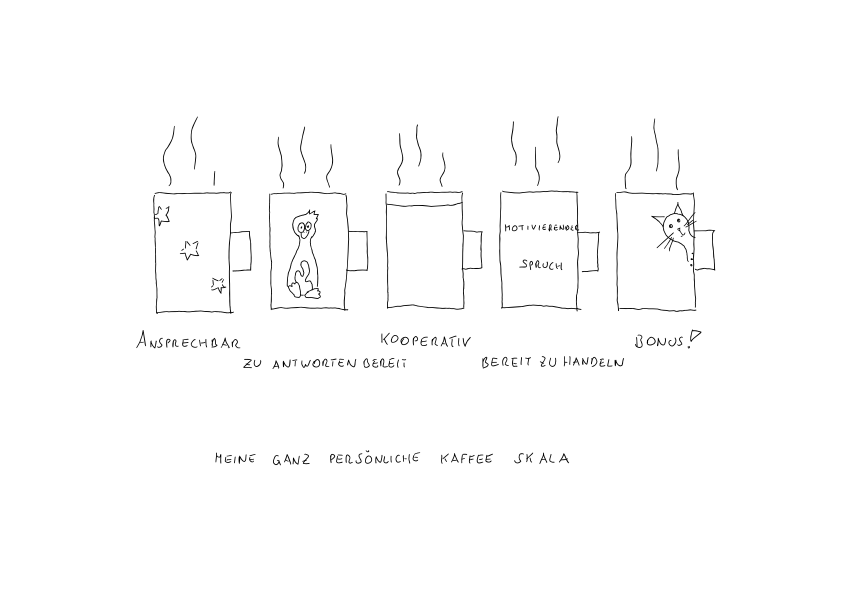 MOTIVIERENDER
SPRUCH
ANSPRECHBAR
ZU ANTWORTEN BEREIT
KOOPERATIV
BEREIT ZU HANDELN
BONUS!
MEINE GANZ PERSÖNLICHE KAFFEE SKALA